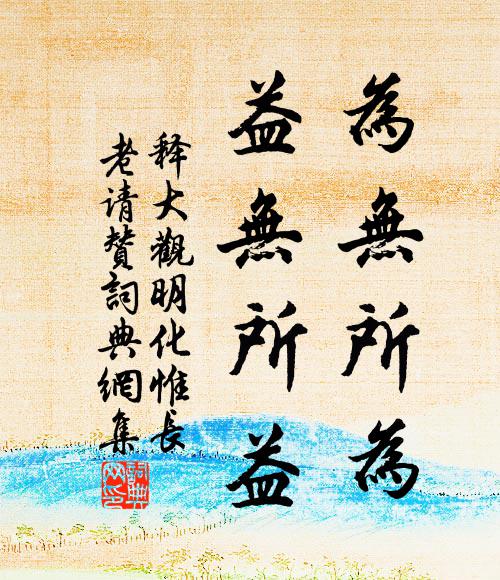 為無所為
益無所益
释大觀明化惟長
老请赞詞典網集